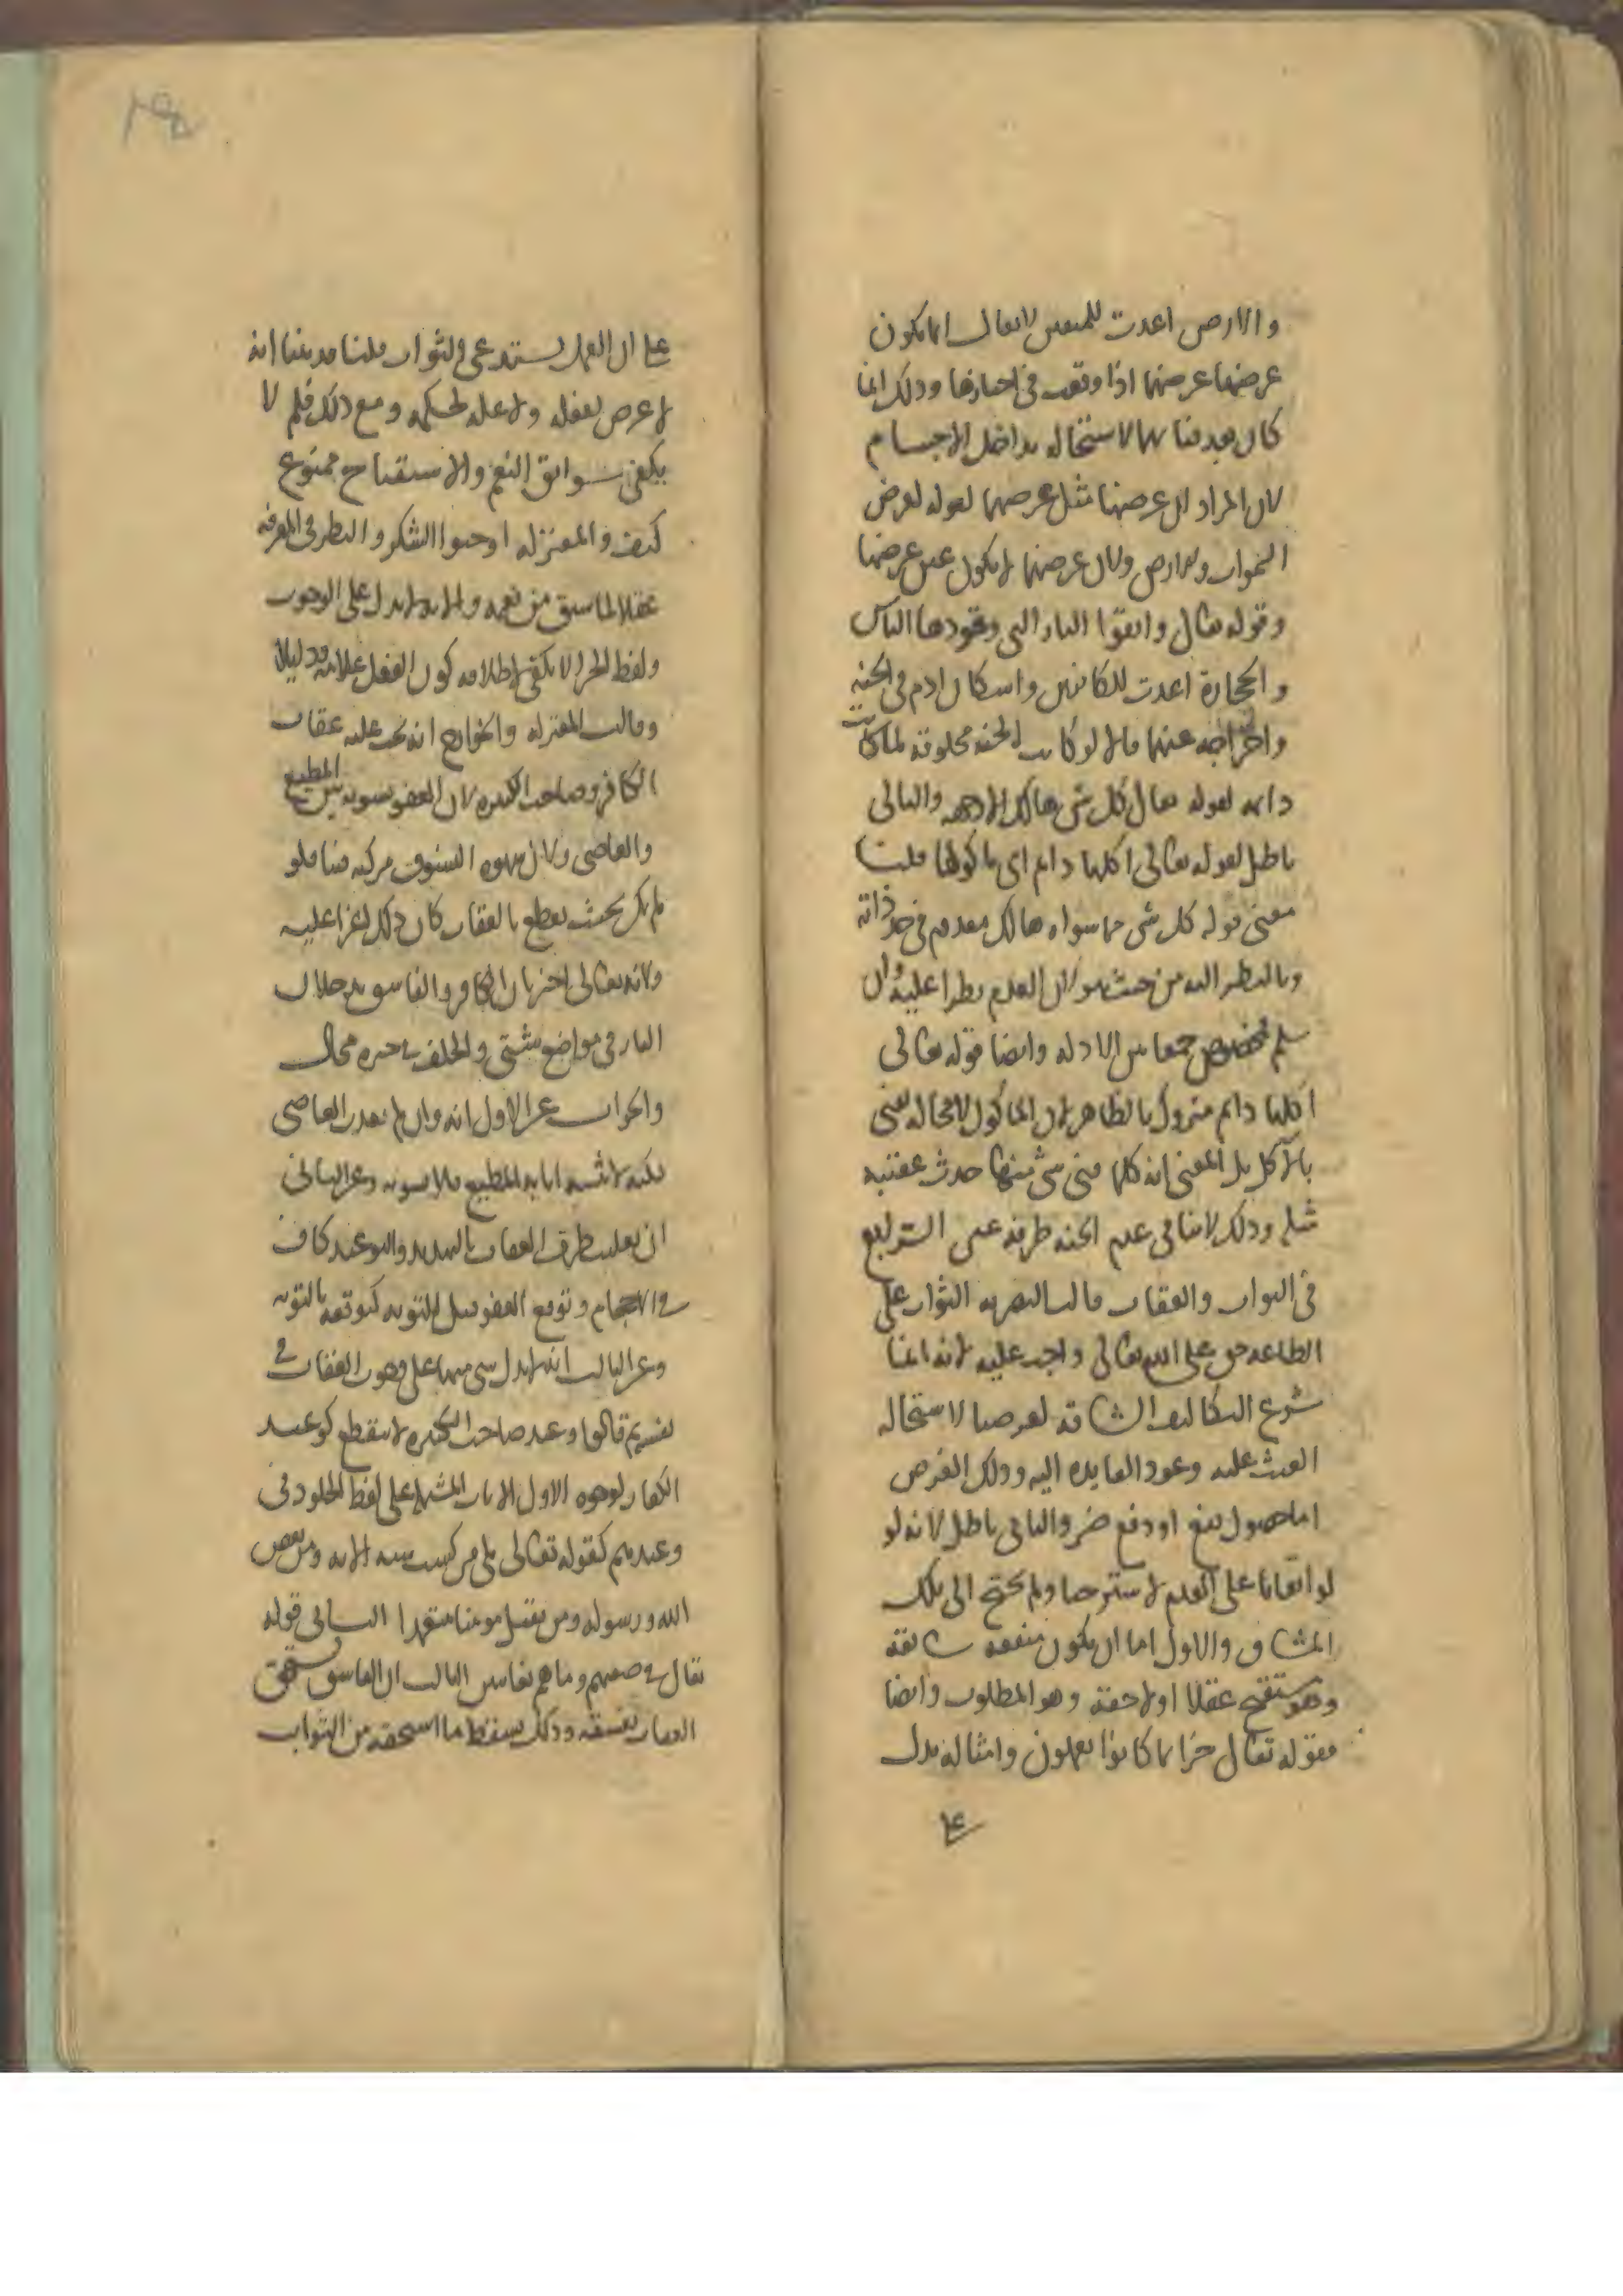 والارض اعدت للمتقين لا يقال انما يكون
عرضها عرضهما اذا وقعت في احيازهما وذلك انما
كان بعد فنائهما لاستحالة تداخل الاجسام
لان المراد ان عرضها مثل عرضهما لقوله كعرض
السموات والارض ولان عرضهما لا يكون عين عرضها
وقوله تعالى واتقوا النار التي وقودها الناس
والحجارة اعدت للكافرين واسكان ادم في الجنة
واخراجه عنها قالوا لو كانت الجنة مخلوقة لما كانت
دائمة لقوله تعالى كل شي هالك الا وجهه والتالي
باطل لقوله تعالى اكلها دائم اي ماكولها قلنا
معنى قوله كل شي مما سواه هالك معدوم في حد ذاته
وبالنظر اليه من حيث هو لا ان العدم يطرا عليه وان
سلم فمخصوص جمعا بين الادلة وايضا قوله تعالى
اكلها دائم متروك بالظاهر لان الماكول لا محالة يفنى
بالاكل بل المعنى انه كلما فني شي منها حدث عقيبه
مثله وذلك لا ينافي عدم الجنة طرفة عين الرابع
في الثواب والعقاب قالت البصرية الثواب على
الطاعة حق على الله تعالى واجب عليه لانه انما
شرع التكاليف الشاقة لغرضنا لاستحالة
العبث عليه وعود الفايدة اليه وذلك الغرض
اما حصول نفع او دفع ضر والثاني باطل لانه لو
لو ابقانا على العدم لاسترحنا ولم نحتج الى تلك
المشاق والاول اما ان يكون منفعة سابقة
وهو مستقبح عقلا او لاحقة وهو المطلوب وايضا
فقوله تعالى جزا بما كانوا يعملون وامثاله يدل
على
على ان العمل يستدعي الثواب قلنا قد بينا انه
لا غرض لفعله ولا علة لحكمه ومع ذلك فلم لا
يكفي سوابق النعم والاستقباح ممنوع
كيف والمعتزلة اوجبوا الشكر والنظر في المعرفة
عقلا لما سبق من نعمه والاية لا تدل على الوجوب
ولفظ الجزا يكفي لاطلاقه كون الفعل علامة ودليلا
وقالت المعتزلة والخوارج انه يجب عليه عقاب
الكافر وصاحب الكبيرة لان العفو تسوية بين المطيع
والعاصي ولان شهوة الفسوق مركبة فينا فلو
لم نكن بحيث نقطع بالعقاب كان ذلك اغرا عليه
ولانه تعالى اخبر بان الكافر والفاسق يدخلان
النار في مواضع شتى والخلف في خبره محال
والجواب عن الاول انه وان لم يعذب العاصي
لكنه لا يثيبه اثابة المطيع فلا تسوية وعن الثاني
ان تغليب طرف العقاب بالتهديد والتوعيد كاف
في الاحجام وتوقع العفو قبل التوبة كتوقعه بالتوبة
وعن الثالث انه لا يدل شي منها على وجوب العقاب في
نفسه ثم قالوا وعيد صاحب الكبيرة لا ينقطع كوعيد
الكفار لوجوه الاول الايات المشتملة على لفظ الخلود في
وعيدهم كقوله تعالى بلى من كسب سيئة الاية ومن يعص
الله ورسوله ومن يقتل مومنا متعمدا الثاني قوله
تعالى في صفتهم وما هم عنها بغائبين الثالث ان الفاسق يستحق
العقاب بفسقه وذلك يسقط ما استحقه من الثواب